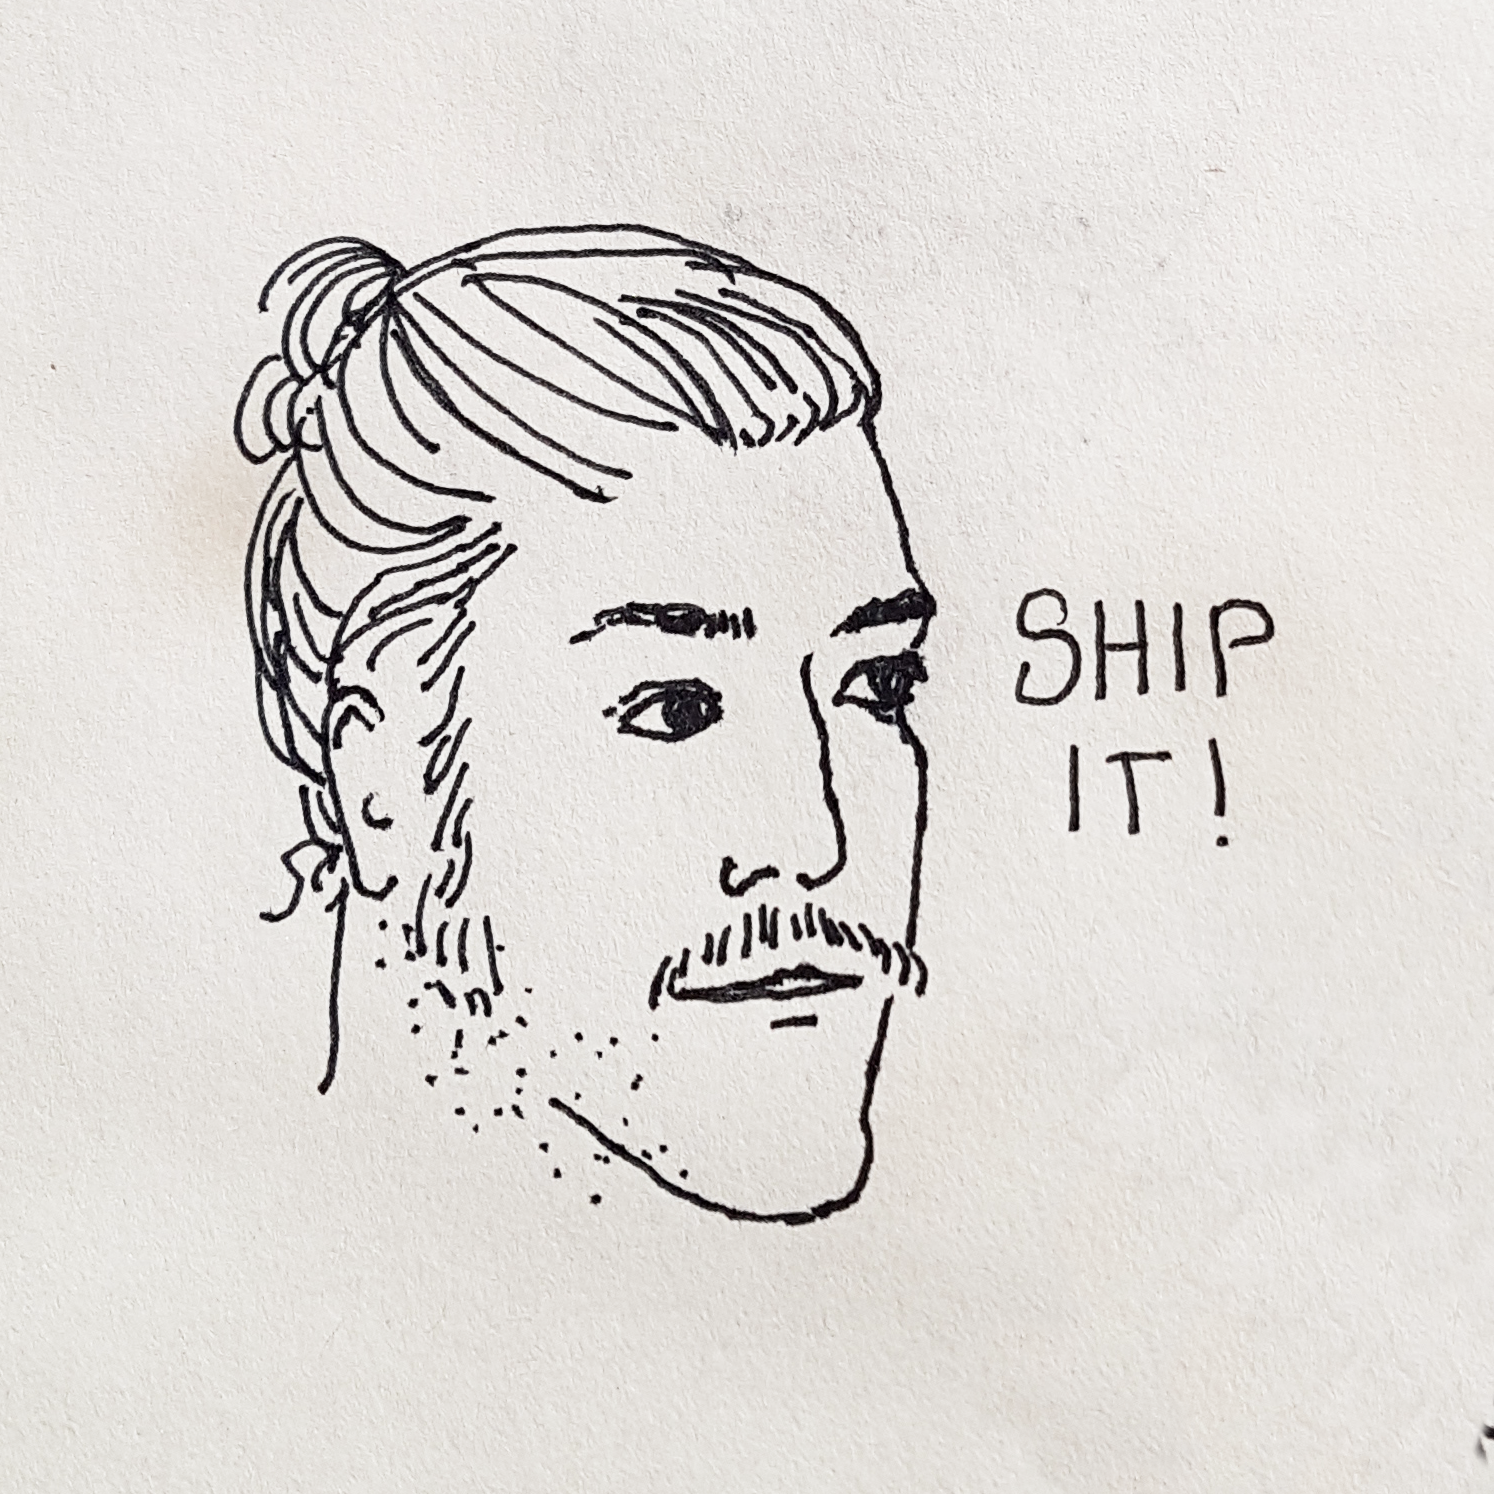 SHIP
IT!